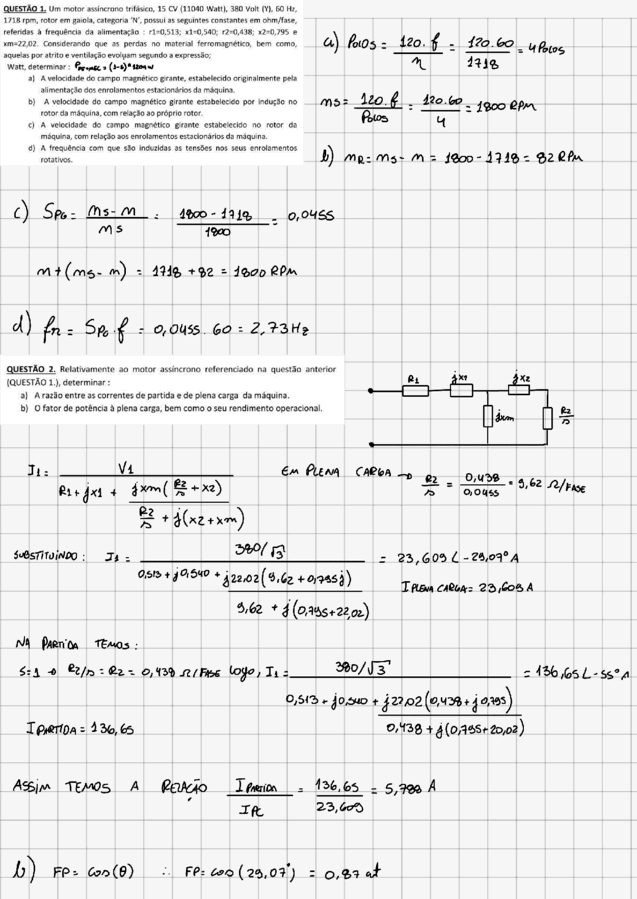 QUESTÃO 1. Um motor assíncrono trifásico, 15 CV (11040 Watt), 380 Volt (Y), 60 Hz,
1718 rpm, rotor em gaiola, categoria 'N', possui as seguintes constantes em ohm/fase,
referidas à frequência da alimentação : r1=0,513; x1=0,540; r2=0,438; x2=0,795 e
xm=22,02. Considerando que as perdas no material ferromagnético, bem como,
aquelas por atrito e ventilação evoluam segundo a expressão;
Watt, determinar :
a) A velocidade do campo magnético girante, estabelecido originalmente pela
alimentação dos enrolamentos estacionários da máquina.
b) A velocidade do campo magnético girante estabelecido por indução no
rotor da máquina, com relação ao próprio rotor.
c) A velocidade do campo magnético girante estabelecido no rotor da
máquina, com relação aos enrolamentos estacionários da máquina.
d) A frequência com que são induzidas as tensões nos seus enrolamentos
rotativos.
a) Polos = 120.f / n = 120.60 / 1718 = 4 Polos
ns = 120.f / Polos = 120.60 / 4 = 1800 RPM
b) nR = ns - n = 1800 - 1718 = 82 RPM
c) SPG = ns - n / ns = 1800 - 1718 / 1800 = 0,0455
n + (ns - n) = 1718 + 82 = 1800 RPM
d) fr = SPG . f = 0,0455 . 60 = 2,73 Hz
QUESTÃO 2. Relativamente ao motor assíncrono referenciado na questão anterior
(QUESTÃO 1.), determinar :
a) A razão entre as correntes de partida e de plena carga da máquina.
b) O fator de potência à plena carga, bem como o seu rendimento operacional.
R1 jx1 jx2
jxm R2/s
I1 = V1 / R1 + jx1 + jxm (R2/s + x2) / R2/s + j(x2 + xm)
EM PLENA CARGA → R2/s = 0,438 / 0,0455 = 9,62 Ω/FASE
SUBSTITUINDO : I1 = 380/√3 / 0,513 + j0,540 + j22,02 (9,62 + 0,795j) / 9,62 + j(0,795+22,02) = 23,609 ∠ -29,07° A
I PLENA CARGA = 23,609 A
NA PARTIDA TEMOS :
S=1 → R2/s = R2 = 0,438 Ω/FASE logo, I1 = 380/√3 / 0,513 + j0,540 + j22,02 (0,438 + j0,795) / 0,438 + j(0,795+20,02) = 136,65 ∠ -55° A
I PARTIDA = 136,65
ASSIM TEMOS A RELAÇÃO I PARTIDA / IPC = 136,65 / 23,609 = 5,788 A
b) FP = cos(θ) ∴ FP = cos (29,07°) = 0,87 at